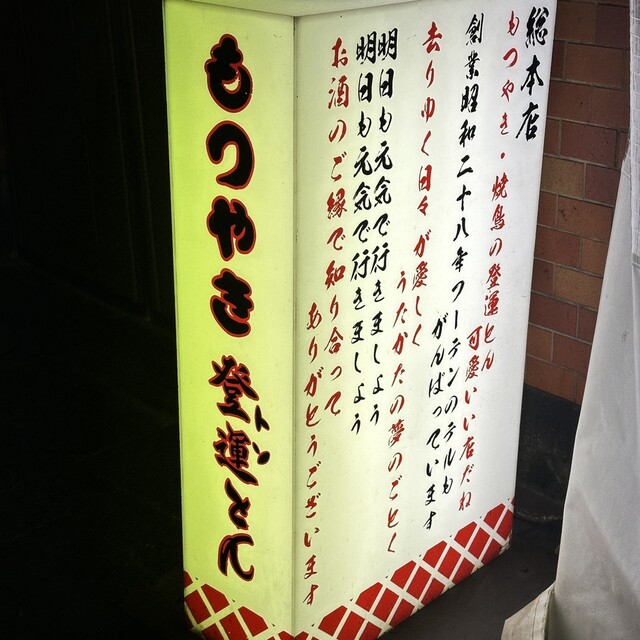 もつやき 登運とん
トン
総本店
もつやき・焼鳥の登運とん
可愛いい店だね
創業昭和二十八年フーテンのテルも
がんばっています
去りゆく日々が愛しく
うたかたの夢のごとく
明日も元気で行きましょう
明日も元気で行きましょう
お酒のご縁で知り合って
ありがとうございます